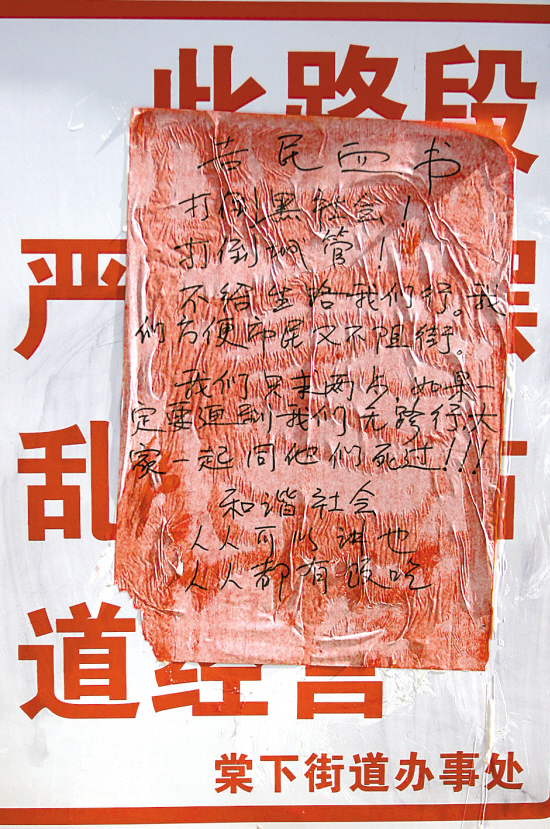 此路段
严
乱
道经营
棠下街道办事处
苦民血书
打倒黑社会！
打倒城管！
不给生路我们行。我
们方便市民又不阻街。
我们只 如果一
定要逼到我们无路行大
家一起同他们死过!!!
和谐社会
人人可以讲也
人人都有饭吃